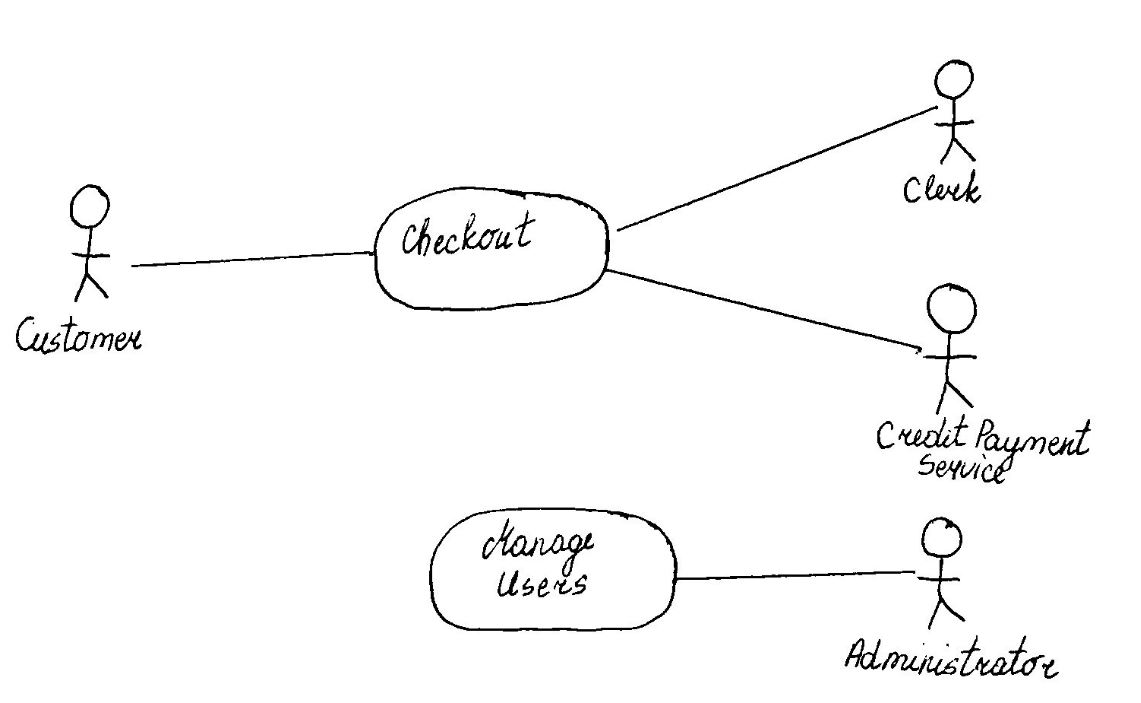 Clerk
Checkout
Customer
Credit Payment
Service
Manage
Users
Administrator